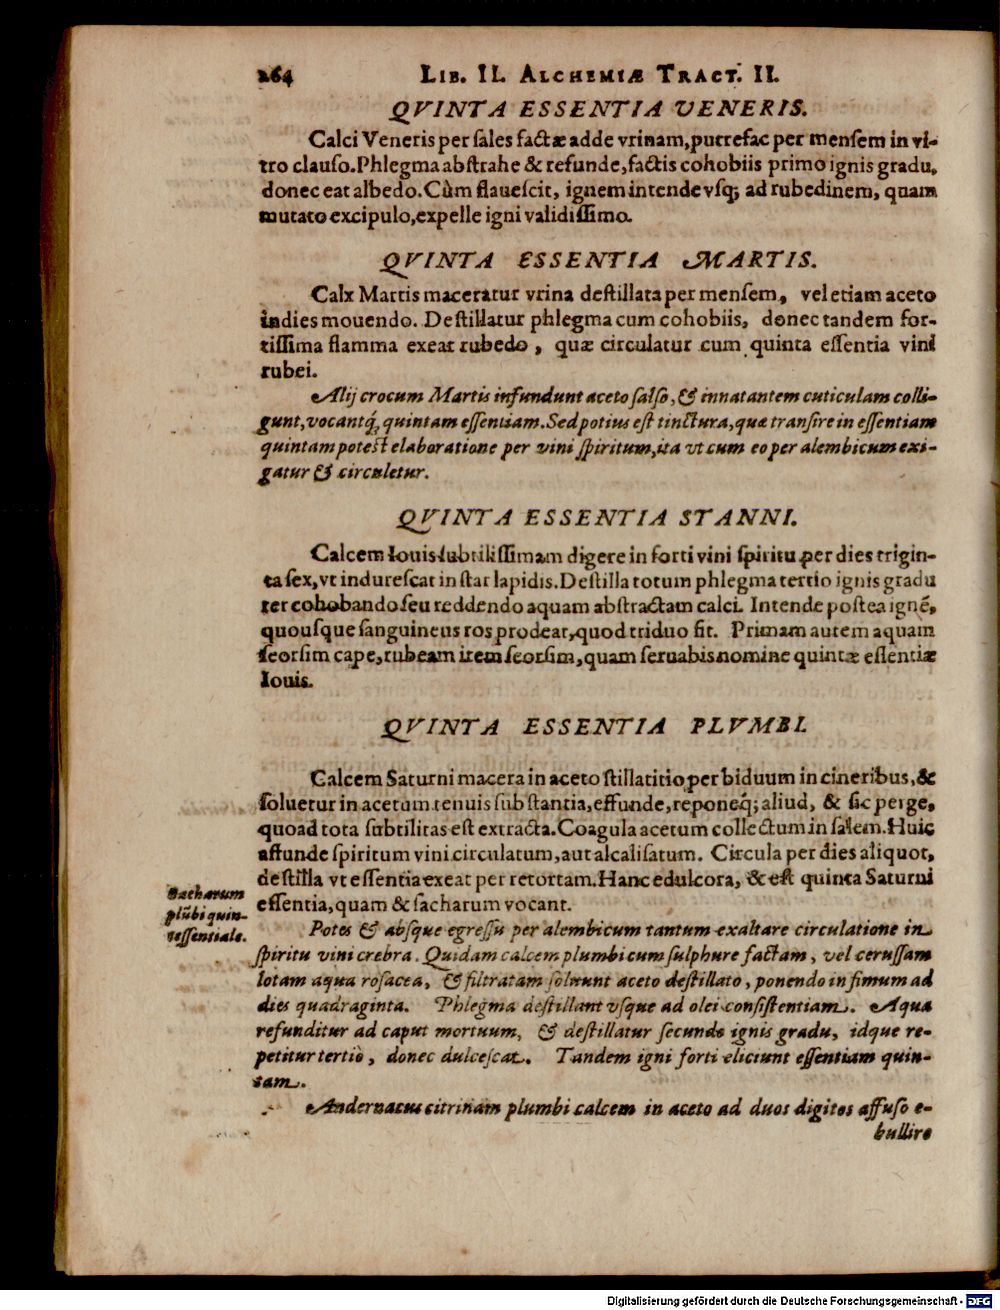 264 LIB. II. ALCHEMIÆ TRACT. II.
QVINTA ESSENTIA VENERIS.
Calci Veneris per sales factæ adde vrinam, putrefac per mensem in vi-
tro clauso. Phlegma abstrahe & refunde, factis cohobiis primo ignis gradu,
donec eat albedo. Cùm flauescit, ignem intende vsq; ad rubedinem, quam
mutato excipulo, expelle igni validissimo.
QVINTA ESSENTIA MARTIS.
Calx Martis maceratur vrina destillata per mensem, vel etiam aceto
indies mouendo. Destillatur phlegma cum cohobiis, donec tandem for-
tissima flamma exeat rubedo, quæ circulatur cum quinta essentia vini
rubei.
Alij crocum Martis infundunt aceto salso, & innatantem cuticulam colli-
gunt, vocantq́; quintam essentiam. Sed potius est tinctura, quæ transire in essentiam
quintam potest elaboratione per vini spiritum, ita vt cum eo per alembicum exi-
gatur & circuletur.
QVINTA ESSENTIA STANNI.
Calcem Iouis subtilissimam digere in forti vini spiritu per dies trigin-
ta sex, vt indurescat instar lapidis. Destilla totum phlegma tertio ignis gradu
ter cohobando seu reddendo aquam abstractam calci. Intende postea ignē,
quousque sanguineus ros prodeat, quod triduo fit. Primam autem aquam
seorsim cape, rubeam item seorsim, quam seruabis nomine quintæ essentiæ
Iouis.
QVINTA ESSENTIA PLVMBI.
Calcem Saturni macera in aceto stillatitio per biduum in cineribus, &
soluetur in acetum tenuis substantia, effunde, reponeq́; aliud, & sic perge,
quoad tota subtilitas est extracta. Coagula acetum collectum in salem. Huic
affunde spiritum vini circulatum, aut alcalisatum. Circula per dies aliquot,
destilla vt essentia exeat per retortam. Hanc edulcora, & est quinta Saturni
essentia, quam & sacharum vocant.
Sacharum
plūbi quin-
tessentiale.
Potes & absque egressu per alembicum tantum exaltare circulatione in
spiritu vini crebra. Quidam calcem plumbi cum sulphure factam, vel cerussam
lotam aqua rosacea, & filtratam soluunt aceto destillato, ponendo in fimum ad
dies quadraginta. Phlegma destillant vsque ad olei consistentiam. Aqua
refunditur ad caput mortuum, & destillatur secundo ignis gradu, idque re-
petitur tertiò, donec dulcescat. Tandem igni forti eliciunt essentiam quin-
tam.
Andernacus citrinam plumbi calcem in aceto ad duos digitos affuso e-
bullire
Digitalisierung gefördert durch die Deutsche Forschungsgemeinschaft - DFG